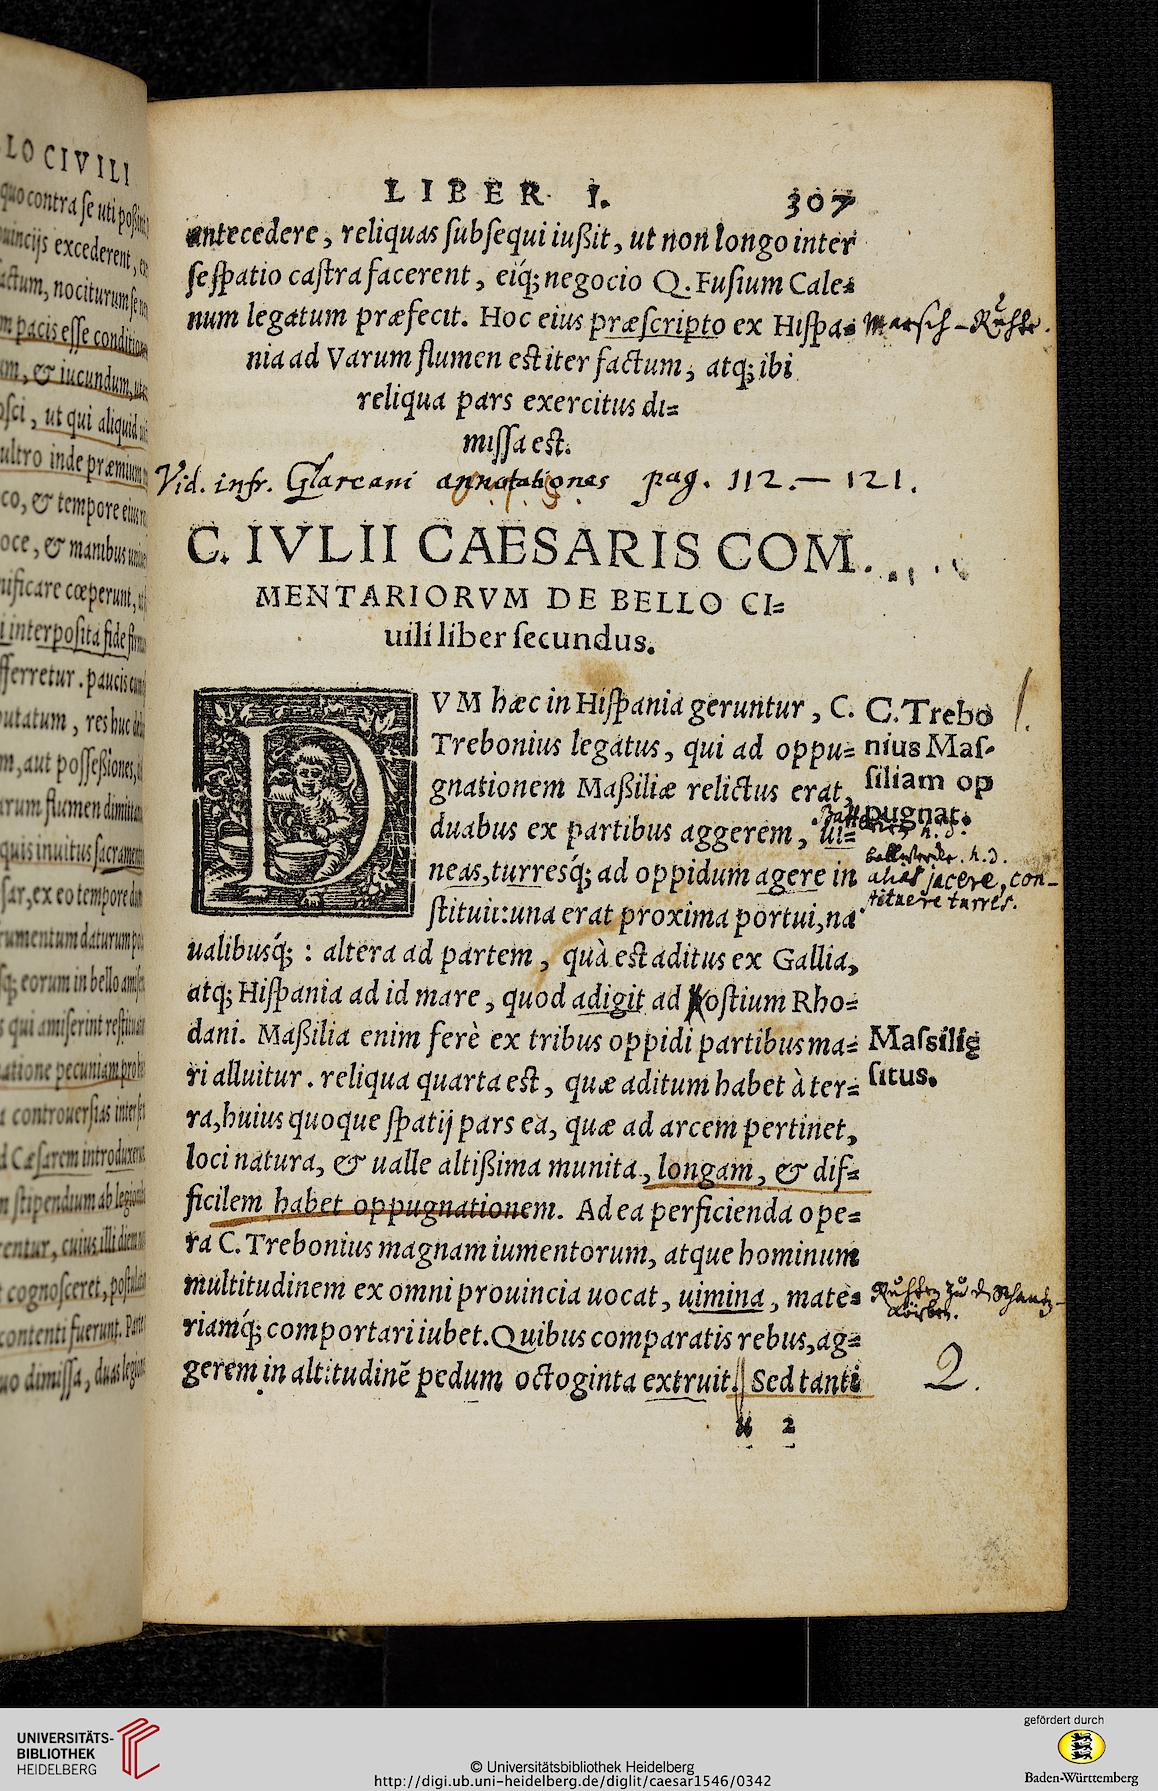 LO CIVILI
quo contra ſe uti poſſint,
uincijs excederent, ex
actum, nociturum ſe
m pacis eſſe conditionem
um, & iucundum,
oſci, ut qui aliquid
ultro inde præmium
co, & tempore eius
oce, & manibus
nificare cœperunt,
i interpoſita fide
fferretur. paucis
utatum, res huc
m, aut poſſeßiones,
arum flumen dimittan
quis inuitus ſacramento
ſar, ex eo tempore
rumentum daturum
ſq; eorum in bello
s qui amiſerint reſtituat
atione pecuniam
a controuerſias inter ſe
d Cæſarem
m ſtipendium ab legionibus
rentur, cuius illi diem
t cognoſceret,
contenti fuerunt. Parte
uo dimiſſa, duas legiones
LIBER I. 307
antecedere, reliquas ſubſequi iußit, ut non longo inter
ſe ſpatio caſtra facerent, eíq; negocio Q. Fuſium Cale=
num legatum præfecit. Hoc eius præſcripto ex Hiſpa=
Marsch-
nia ad Varum flumen eſt iter factum, atq; ibi
reliqua pars exercitus di=
miſſa eſt.
Vid. infr. Glareani annotationes pag. 112.— 121.
C. IVLII CAESARIS COM.
MENTARIORVM DE BELLO CI=
uili liber ſecundus.
DVM hæc in Hiſpania geruntur, C.
Trebonius legatus, qui ad oppu=
gnationem Maßiliæ relictus erat,
duabus ex partibus aggerem, ui=
neas, turreśq; ad oppidum agere in
ſtituit: una erat proxima portui, na
ualibuśq; : altera ad partem, quà eſt aditus ex Gallia,
atq; Hiſpania ad id mare, quod adigit ad oſtium Rho=
dani. Maßilia enim ferè ex tribus oppidi partibus ma=
ri alluitur. reliqua quarta eſt, quæ aditum habet à ter=
ra, huius quoque ſpatij pars ea, quæ ad arcem pertinet,
loci natura, & ualle altißima munita, longam, & dif=
ficilem habet oppugnationem. Ad ea perficienda ope=
ra C. Trebonius magnam iumentorum, atque hominum
multitudinem ex omni prouincia uocat, uimina, mate=
riamq́; comportari iubet. Quibus comparatis rebus, ag=
gerem in altitudinẽ pedum octoginta extruit. Sed tanti
u 2
C. Trebo
nius Maſ-
ſiliam op
pugnat.
alias jacere, con-
stituere turres.
1.
Maſsilię
ſitus.
2.
UNIVERSITÄTS-
BIBLIOTHEK
HEIDELBERG
© Universitätsbibliothek Heidelberg
http://digi.ub.uni-heidelberg.de/diglit/caesar1546/0342
gefördert durch
Baden-Württemberg